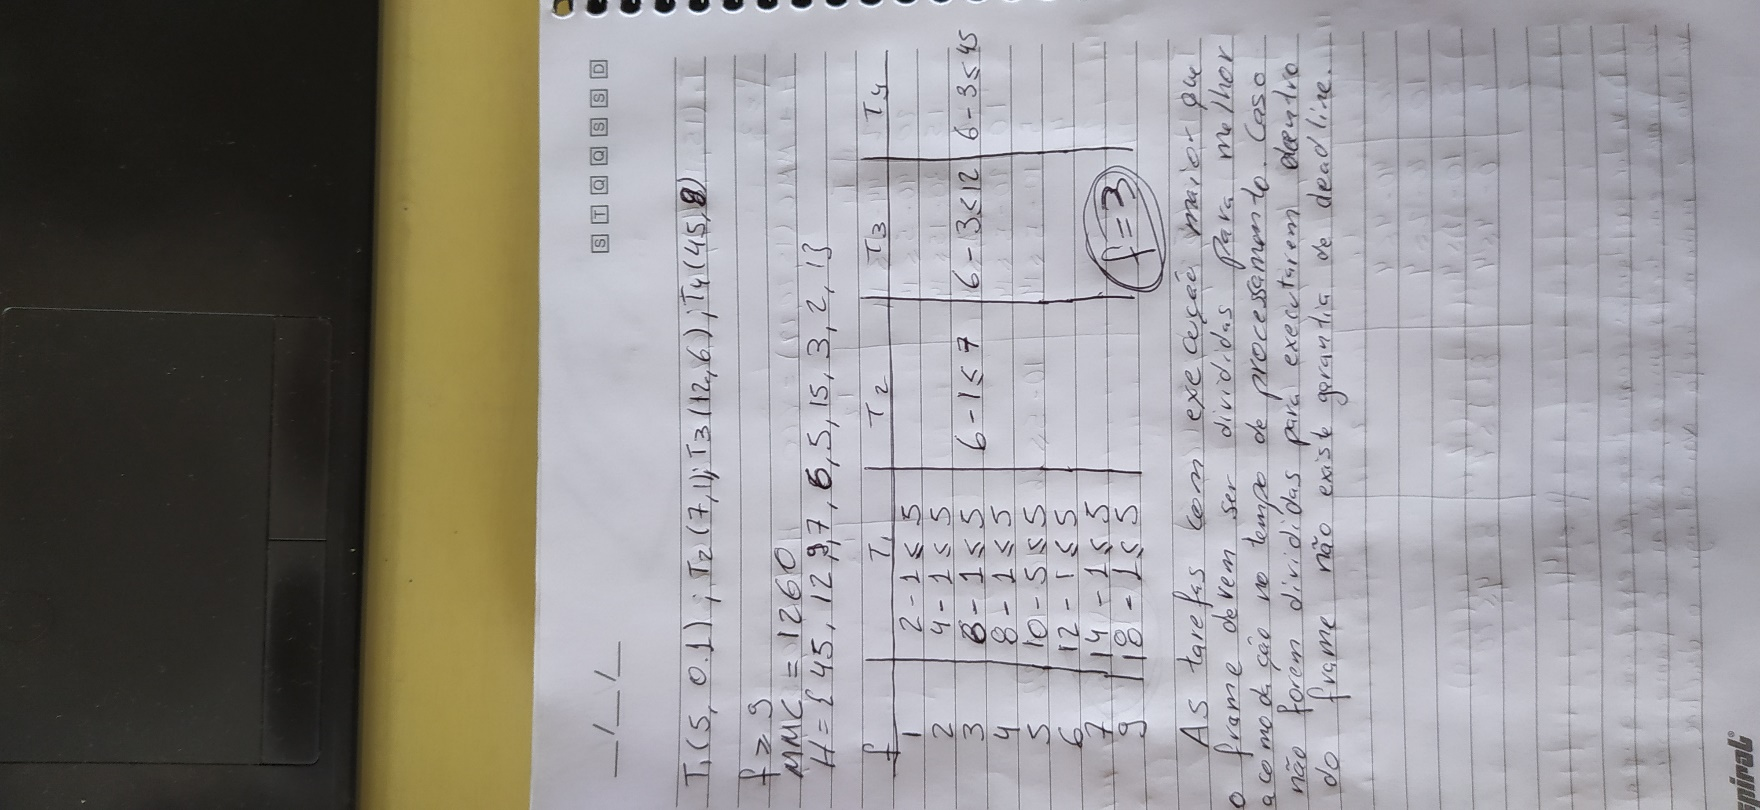 S T Q Q S S D
__/__/__
T1(5, 0.1); T2(7,1); T3(12,6); T4(45,9)
f ≥ 9
MMC = 1260
H = {45, 12, 9, 7, 6, 5, 15, 3, 2, 1}
f T1 T2 T3 T4
1 2 - 1 ≤ 5
2 4 - 1 ≤ 5
3 6 - 1 ≤ 5 6 - 1 ≤ 7 6 - 3 ≤ 12 6 - 3 ≤ 45
4 8 - 1 ≤ 5
5 10 - 5 ≤ 5
6 12 - 1 ≤ 5
7 14 - 1 ≤ 5
9 18 - 1 ≤ 5
f = 3
As tarefas com execução maior que
o frame devem ser divididas para melhor
acomodação no tempo de processamento. Caso
não forem divididas para executarem dentro
do frame não existe garantia de deadline.
spiral